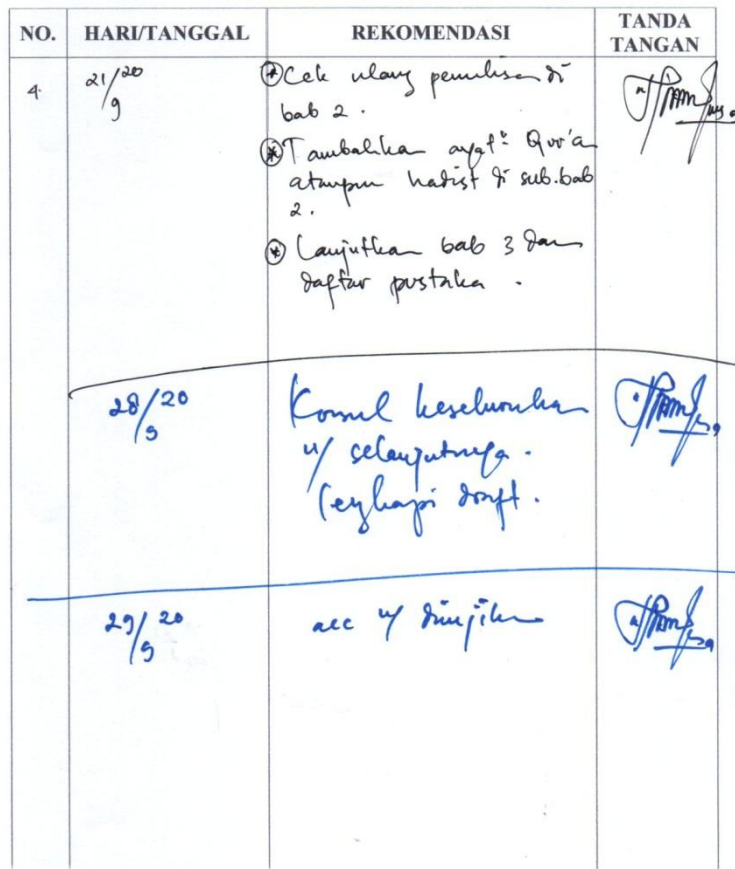 NO. HARI/TANGGAL REKOMENDASI TANDA TANGAN
4. 21/9 20 * Cek ulang penulisan di
bab 2.
* Tambahkan ayat² Qur'an
ataupun hadist di sub.bab
2.
* Lanjutkan bab 3 dan
daftar pustaka.
28/9 20 Konsul keseluruhan
u/ selanjutnya.
Lengkapi draft.
29/9 20 acc u/ diujikan